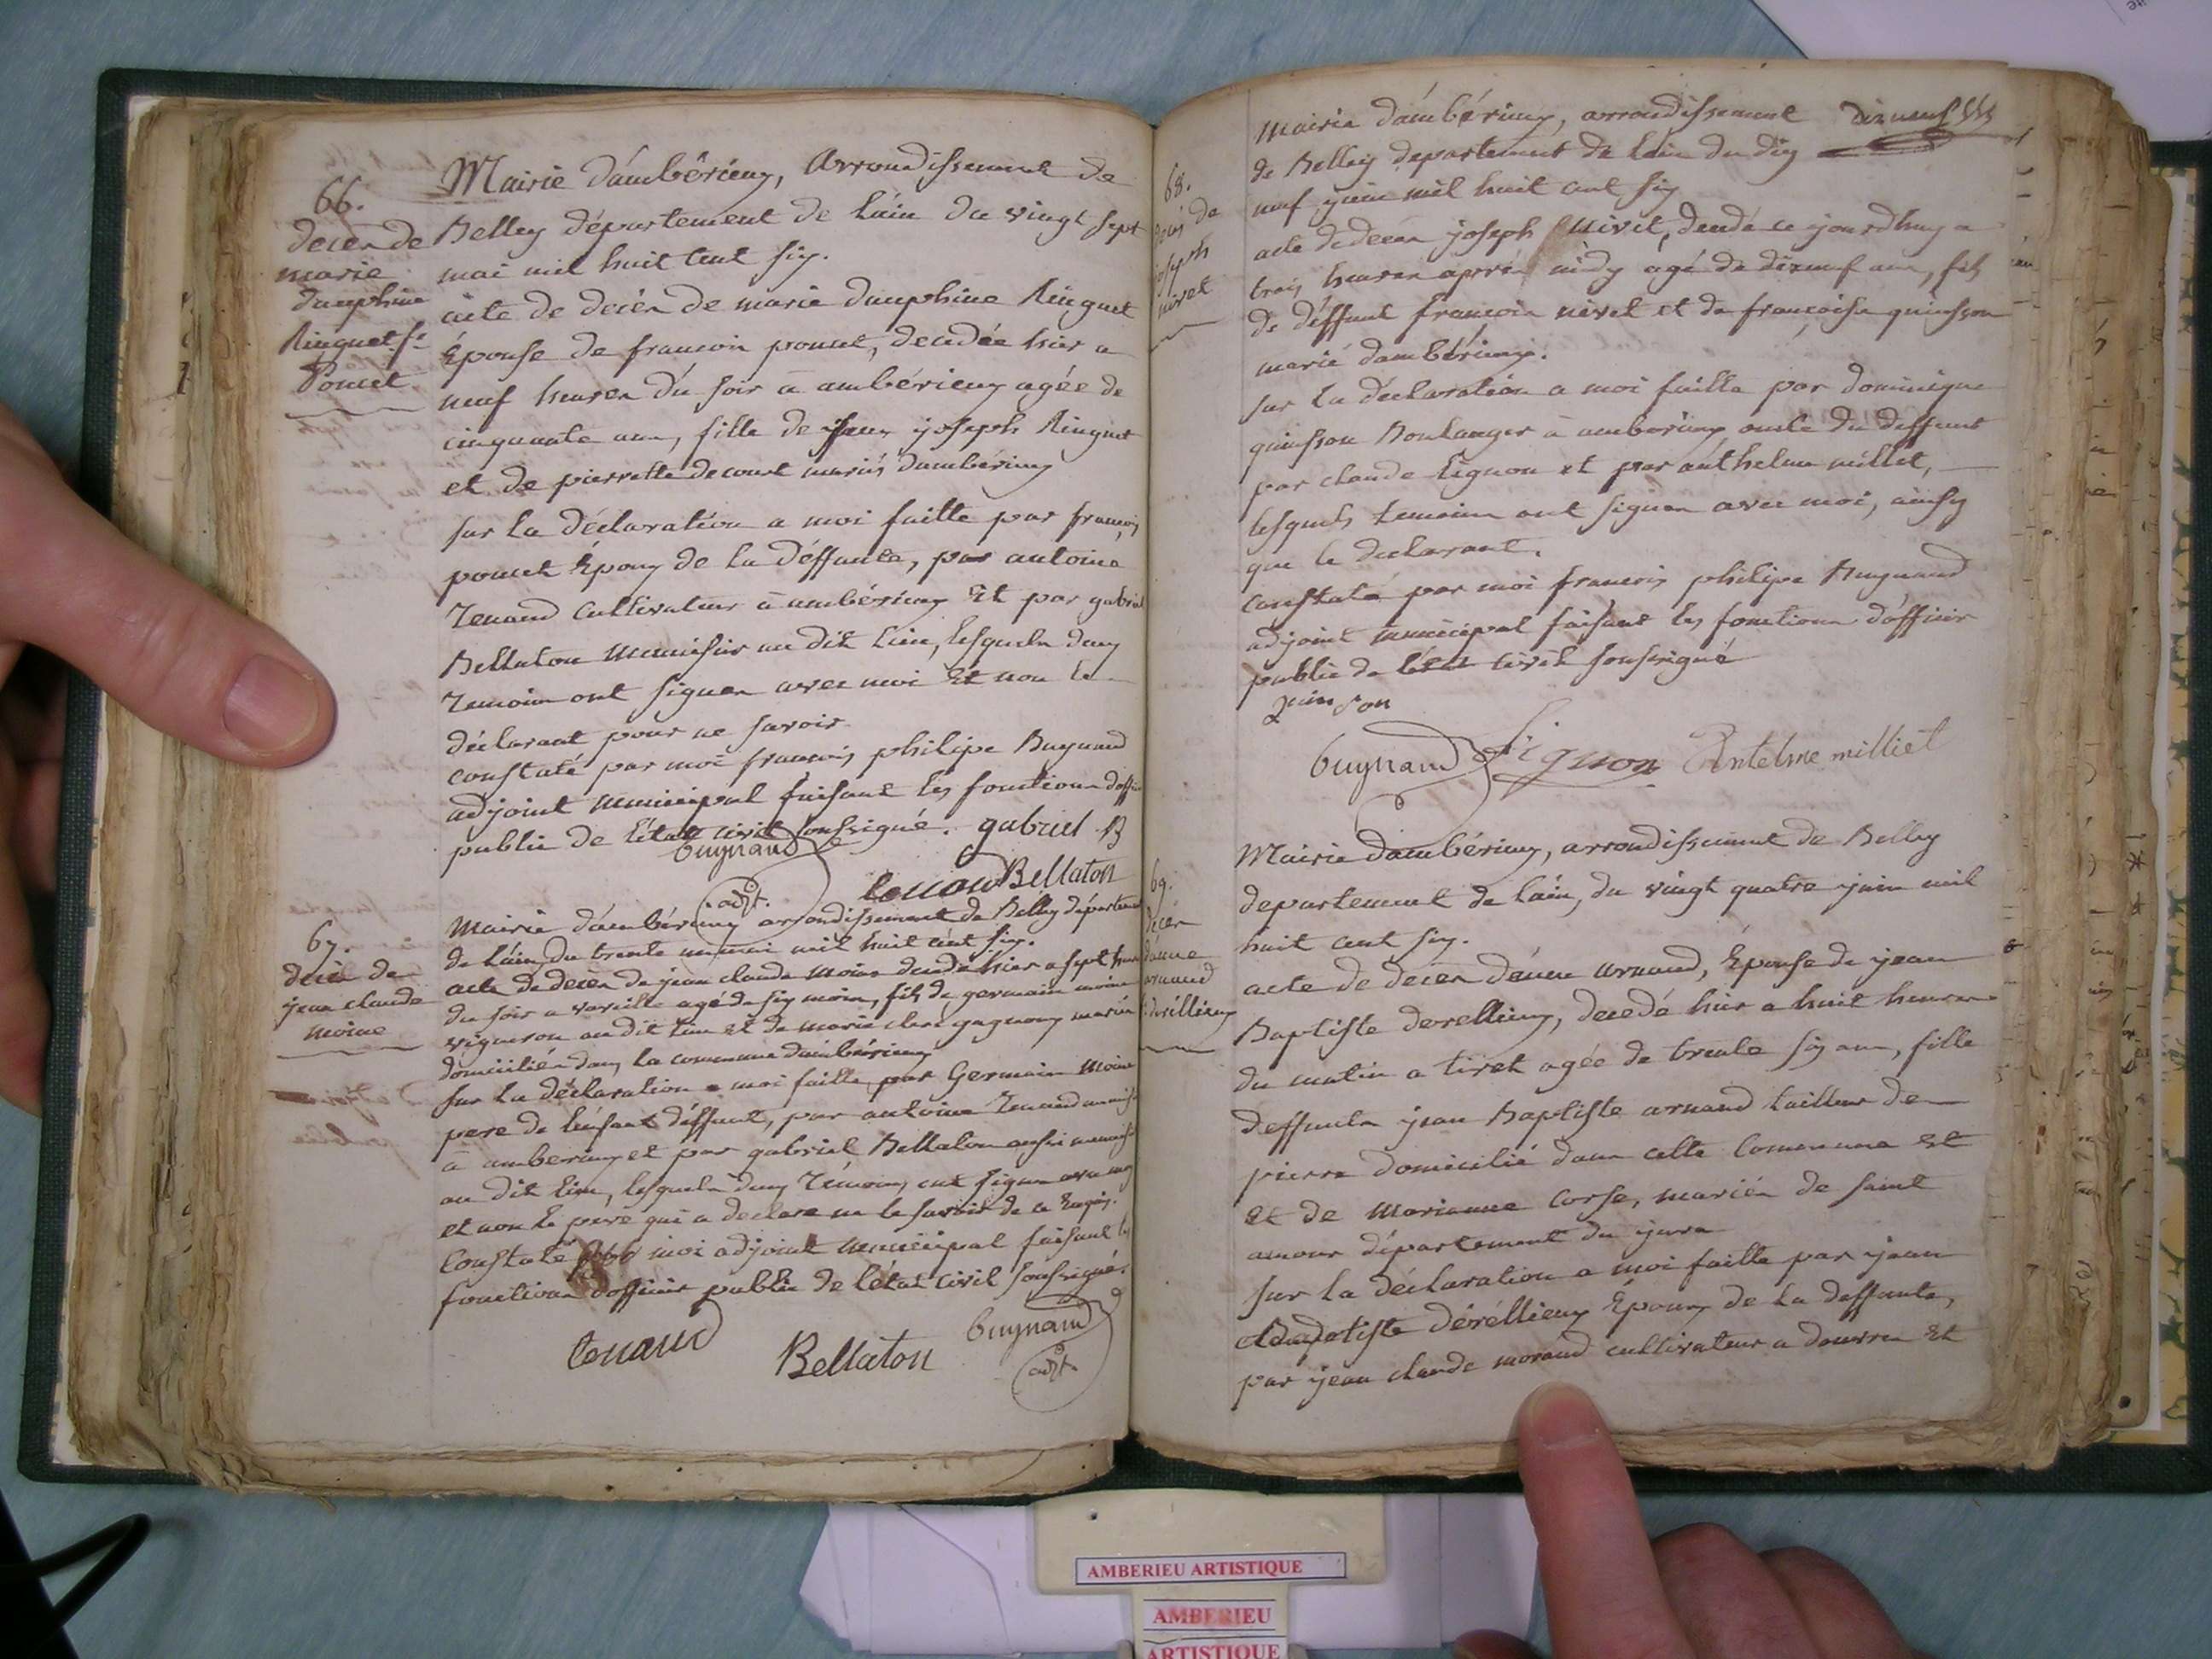 66.
deces de
marie
dauphine
Ringuet fe
Poncet
Mairie d'ambérieux, Arrondissement de
Belley département de l'ain du vingt sept
mai mil huit cent six.
acte de décès de marie dauphine Ringuet
Épouse de francois poncet, decedée hier a
neuf heures du soir a ambérieux agée de
cinquante ans, fille de joseph Ringuet
et de pierrette decourt mariés d'ambérieux
sur la déclaration a moi faitte par francois
poncet Époux de la déffunte, par antoine
Tenand cultivateur a ambérieux Et par gabriel
Bellaton menuisier au dit lieu, lesquels deux
Temoins ont signés avec moi Et non le
déclarant pour ne savoir
constaté par moi francois philipe Buynand
adjoint municipal faisant les fonctions d'officier
public de l'état civil soussigné. gabriel B
buynand
adjt. tenand Bellaton
67.
décès de
jean claude
moine
Mairie d'ambérieux arrondissement de Belley département
de l'ain, du trente mai mil huit cent six.
acte de décès de jean claude moine decedé hier a sept heures
du soir a vareille agé de six mois, fils de germain moine
vigneron au dit lieu et de marie clere gagneux mariés
domiciliés dans la commune d'ambérieux
sur la déclaration a moi faitte par Germain moine
pere de l'enfant déffunt, par antoine Tenand
à amberieux et par gabriel Bellaton aussi menuisier
au dit lieu, lesquels deux Témoins ont signés avec moi
et non le pere qui a declaré ne le savoir de ce Requis.
Constaté par moi adjoint municipal faisant les
fonctions d'officier public de l'état civil soussigné.
tenand Bellaton buynand
adjt.
68.
décès de
joseph
nivet
Mairie d'ambérieux, arrondissement
de Belley departement de l'ain du dix
neuf juin mil huit cent six
acte de deces joseph Nivet, decedé ce jourdhuy a
trois heures après midy agé de dixneuf ans, fils
de déffunt francois nivet et de francoise quinsson
marié d'ambérieux.
sur la déclaration a moi faitte par dominique
quinsson Boulanger a amberieux oncle du deffunt
par claude Lignon et par anthelme millet,
lesquels temoins ont signés avec moi, ainsy
que le declarant.
constaté par moi francois philipe Buynand
adjoint municipal faisant les fonctions d'officier
public de l'état civil soussigné
quinson
buynand Lignon Antelme milliet
69.
décès
d'anne
arnaud
dérellieux
Mairie d'ambérieux, arrondissement de Belley
departement de l'ain, du vingt quatre juin mil
huit cent six.
acte de deces d'anne arnaud, Épouse de jean
Baptiste derellieux, decedé hier a huit heures
du matin a tiret agée de trente six ans, fille
deffunts jean Baptiste arnaud tailleur de
pierre domicilié dans cette Commune et
et de marianne Corse, mariés de saint
amour département du jura
sur la déclaration a moi faitte par jean
Baptiste dérellieux Époux de la deffunte,
par jean claude morand cultivateur a douvres et
AMBERIEU ARTISTIQUE
AMBERIEU
ARTISTIQUE